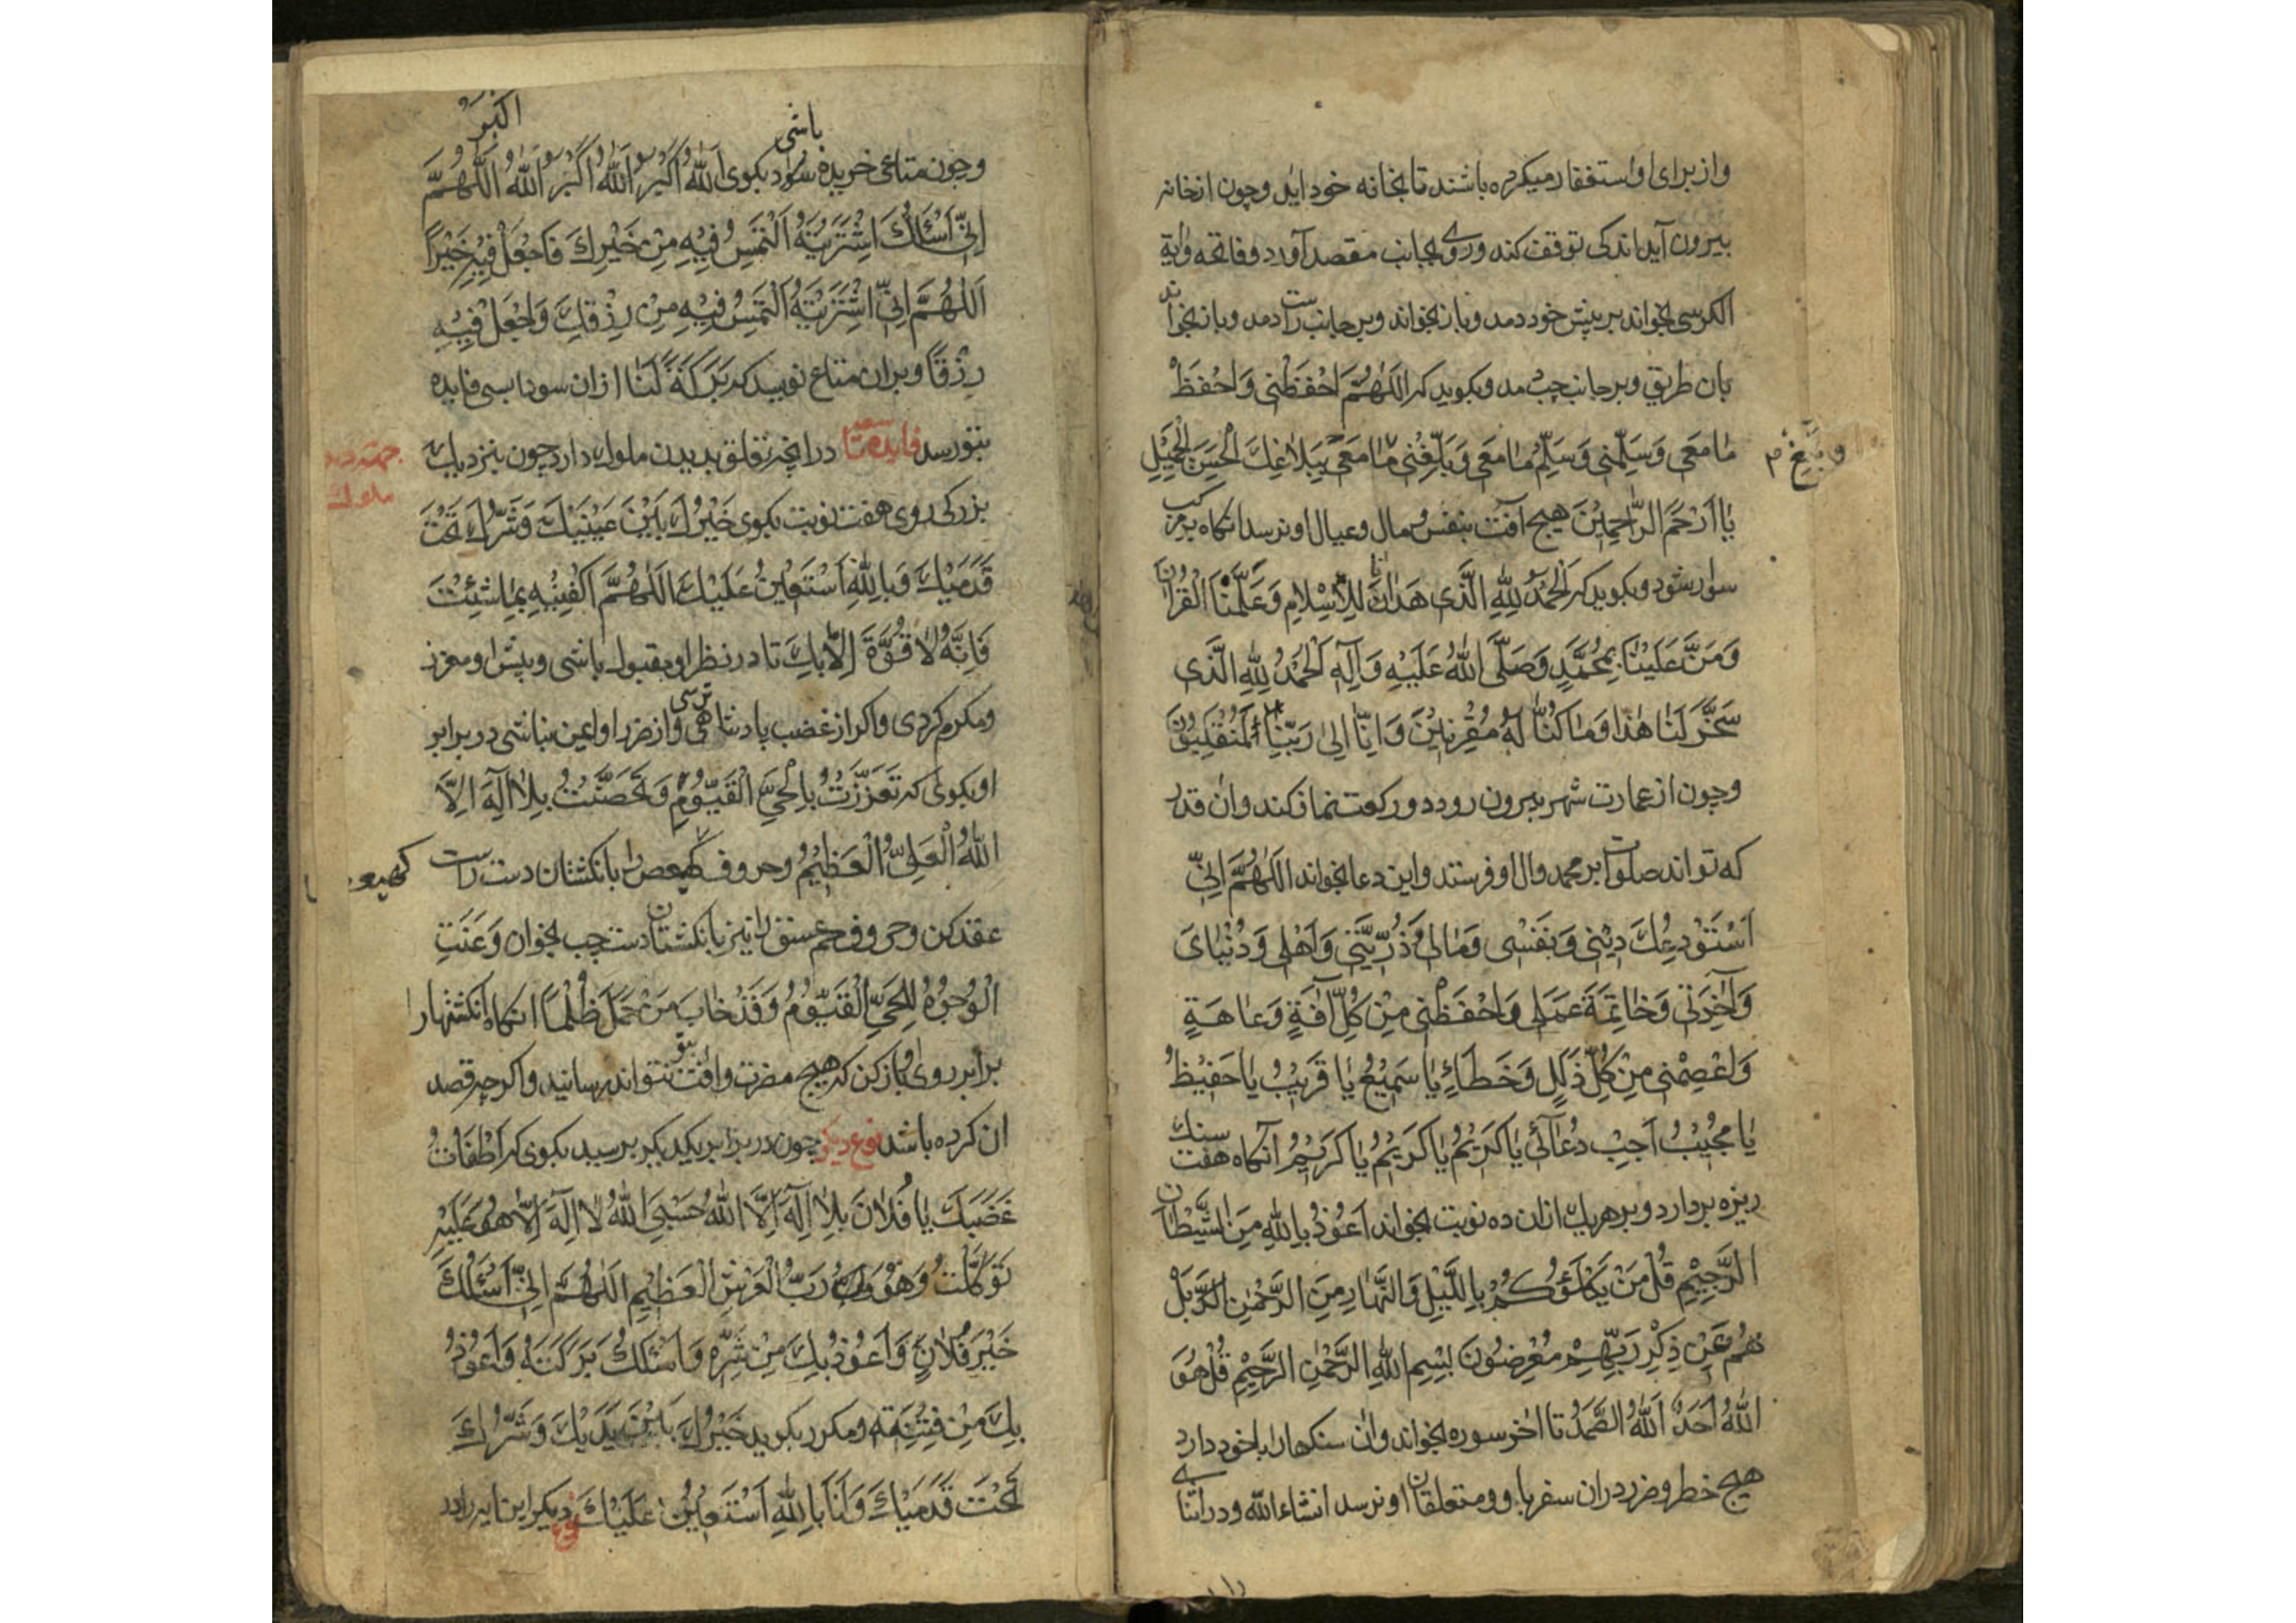 واز برای او استغفار میکرده باشند تا بخانه خود اید وچون از خانه
بیرون آید اندکی توقف کند وروی بجانب مقصد آورد وفاتحه وایة
الکرسی بخواند بر پیش خود دمد وباز بخواند وبر جانب راست دمد وباز بخواند
بان طریق وبر جانب چپ دمد وبکوید که اَللّٰهُمَّ احْفَظْنی وَاحْفَظْ
مٰا مَعی وَسَلِّمْنی وَسَلِّمْ مٰا مَعی وَبَلِّغْنی مٰا مَعی بِبَلاٰغِكَ الْحَسَنِ الْجَمیٖلِ
وبَلِّغ م
یٰا اَرْحَمَ الرّٰاحِمیٖنَ هیچ آفت بنفس ومال وعیال او نرسد انکاه بر مرکب
سوار شود وبکوید که اَلْحَمْدُ لِلّٰهِ الَّذی هَدٰانٰا لِلْاِسْلاٰمِ وَعَلَّمَنَا الْقُرْاٰنَ
وَمَنَّ عَلَیْنٰا بِمُحَمَّدٍ وَصَلَّی اللّٰهُ عَلَیْهِ وَآلِهِ اَلْحَمْدُ لِلّٰهِ الَّذی
سَخَّرَ لَنٰا هٰذٰا وَمٰا کُنّٰا لَهُ مُقْرِنیٖنَ وَاِنّٰا اِلیٰ رَبِّنٰا لَمُنْقَلِبُونَ
وچون از عمارت شهر بیرون رود دو رکعت نماز کند وان قدر
که تواند صلوات بر محمد وال او فرستد واین دعا بخواند اَللّٰهُمَّ اِنّی
اَسْتَوْدِعُكَ دیٖنی وَنَفْسی وَمٰالی وَذُرِّیَّتی وَاَهْلی وَدُنْیٰایَ
وَآخِرَتی وَخٰاتِمَةَ عَمَلی وَاحْفَظْنی مِنْ کُلِّ اٰفَةٍ وَعٰاهَةٍ
وَاعْصِمْنی مِنْ کُلِّ ذَلَلٍ وَخَطَاءٍ یٰا سَمیٖعُ یٰا قَریٖبُ یٰا حَفیٖظُ
یٰا مُجیٖبُ اَجِبْ دُعٰآئی یٰا کَریٖمُ یٰا کَریٖمُ یٰا کَریٖمُ آنکاه هفت سنك
ریزه بردارد وبر هریك ازان ده نوبت بخواند اَعُوذُ بِاللّٰهِ مِنَ الشَّیْطٰانِ
الرَّجیٖمِ قُلْ مَنْ یَکْلَؤُکُمْ بِاللَّیْلِ وَالنَّهٰارِ مِنَ الرَّحْمٰنِ بَلْ
هُمْ عَنْ ذِکْرِ رَبِّهِمْ مُعْرِضُونَ بِسْمِ اللّٰهِ الرَّحْمٰنِ الرَّحیٖمِ قُلْ هُوَ
اللّٰهُ اَحَدٌ اَللّٰهُ الصَّمَدُ تا اٰخر سوره بخواند وان سنکها را باخود دارد
هیچ خطر وضرر دران سفر باو ومتعلقان او نرسد انشاءالله ودر اثنای
وچون متاعی خریده باشی سواد بکوی اَللّٰهُ اَکْبَرُ اَللّٰهُ اَکْبَرُ اَللّٰهُ اکبرُ اَللّٰهُمَّ
اِنّی اَسْأَلُكَ اشْتَرَیْتُهُ اَلْتَمِسُ فیٖهِ مِنْ خَیْرِكَ فَاجْعَلْ فیٖهِ خَیْرًا
اَللّٰهُمَّ اِنّی اشْتَرَیْتُهُ اَلْتَمِسُ فیٖهِ مِنْ رِزْقِكَ وَاجْعَلْ فیٖهِ
رِزْقًا وبران متاع نویسد که بَرَکَةً لَنٰا ازان سودا بسی فایده
بتو رسد فایده تاسعه درانچه تعلق بدیدن ملوك دارد چون بنزدیك
جهة دیدن
ملوك
بزرکی روی هفت نوبت بکوی خَیْرُكَ بَیْنَ عَیْنَیْكَ وَشَرُّكَ تَحْتَ
قَدَمَیْكَ وَبِاللّٰهِ اَسْتَعیٖنُ عَلَیْكَ اَللّٰهُمَّ اکْفِنیٖهِ بِمٰا شِئْتَ
فَاِنَّهُ لاٰ قُوَّةَ اِلّاٰ بِكَ تا در نظر او مقبول باشی وپیش او معزز
ومکرم کردی واکر از غضب پادشاهی ترسی واز ضرر او ایمن نباشی در برابر
او بکوئی که تَعَزَّزْتُ بِالْحَیِّ الْقَیُّومِ وَتَحَصَّنْتُ بِلاٰ اِلٰهَ اِلَّا
اللّٰهُ الْعَلِیُّ الْعَظیٖمُ وحروف کهیعص را بانکشتان دست راست
کهیعص
عقد کن وحروف حم عسق را نیز بانکشتان دست چپ بخوان وَعَنَتِ
الْوُجُوهُ لِلْحَیِّ الْقَیُّومِ وَقَدْ خٰابَ مَنْ حَمَلَ ظُلْمًا انکاه انکشتها را
برابر روی او باز کن که هیچ مضرت وافت بتو نتواند رسانید واکرچه قصد
ان کرده باشد نوع دیکر چون در برابر یکدیکر برسید بکوی که اَطْفَاْتُ
غَضَبَكَ یٰا فُلاٰنَ بِلاٰ اِلٰهَ اِلَّا اللّٰهُ حَسْبِیَ اللّٰهُ لاٰ اِلٰهَ اِلّاٰ هُوَ عَلَیْهِ
تَوَکَّلْتُ وَهُوَ رَبُّ الْعَرْشِ الْعَظیٖمِ اَللّٰهُمَّ اِنّی اَسْئَلُكَ
خَیْرَ فُلاٰنٍ وَاَعُوذُ بِكَ مِنْ شَرِّهِ وَاَسْئَلُكَ بَرَکَتَهُ وَاَعُوذُ
بِكَ مِنْ فِتْنَتِهِ ومکرر بکوید خَیْرُكَ بَیْنَ یَدَیْكَ وَشَرُّكَ
تَحْتَ قَدَمَیْكَ وَاَنَا بِاللّٰهِ اَسْتَعیٖنُ عَلَیْكَ نوع دیکر این ایه را در